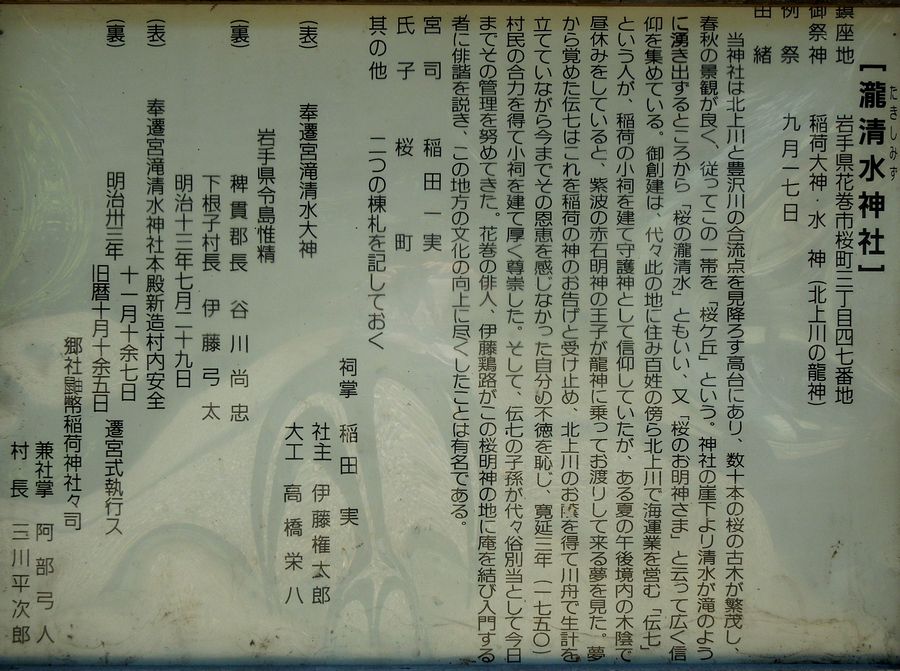 [瀧清水神社]
たきしみず
鎮座地 岩手県花巻市桜町三丁目四七番地
御祭神 稲荷大神・水神(北上川の龍神)
例祭 九月一七日
由緒
当神社は北上川と豊沢川の合流点を見降ろす高台にあり、数十本の桜の古木が繁茂し、
春秋の景観が良く、従ってこの一帯を「桜ケ丘」という。神社の崖下より清水が滝のよう
に湧き出ずるところから「桜の瀧清水」ともいい、又「桜のお明神さま」と云って広く信
仰を集めている。御創建は、代々此の地に住み百姓の傍ら北上川で海運業を営む「伝七」
という人が、稲荷の小祠を建て守護神として信仰していたが、ある夏の午後境内の木陰で
昼休みをしていると、紫波の赤石明神の王子が龍神に乗ってお渡りして来る夢を見た。夢
から覚めた伝七はこれを稲荷の神のお告げと受け止め、北上川のお蔭を得て川舟で生計を
立てていながら今までその恩恵を感じなかった自分の不徳を恥じ、寛延三年(一七五〇)
村民の合力を得て小祠を建て厚く尊崇した。そして、伝七の子孫が代々俗別当として今日
までその管理を努めてきた。花巻の俳人、伊藤鶏路がこの桜明神の地に庵を結び入門する
者に俳諧を説き、この地方の文化の向上に尽くしたことは有名である。
宮司 稲田一実
氏子 桜町
其の他 二つの棟札を記しておく
祠掌 稲田実
(表) 奉遷宮滝清水大神
社主 伊藤権太郎
大工 高橋栄八
岩手県令島惟精
(裏) 稗貫郡長 谷川尚忠
下根子村長 伊藤弓太
明治十三年七月二十九日
(表) 奉遷宮滝清水神社本殿新造村内安全
(裏) 明治卅三年 十一月十余七日
旧暦十月十余五日 遷宮式執行ス
郷社鼬幣稲荷神社々司
兼社掌 阿部弓人
村長 三川平次郎